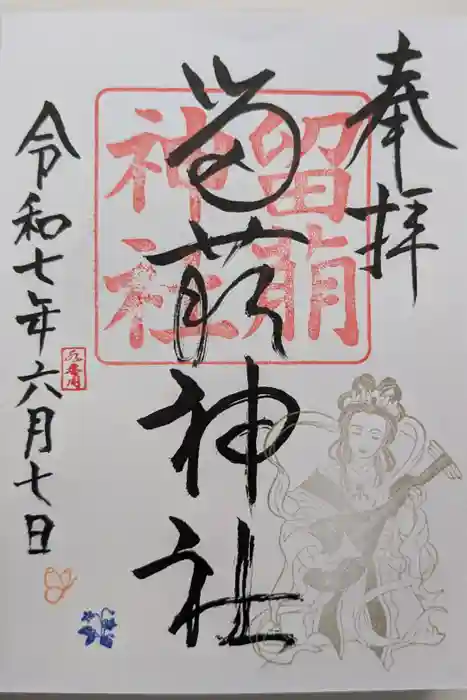 奉拝
留萌神社
留萌神社
令和七年六月七日